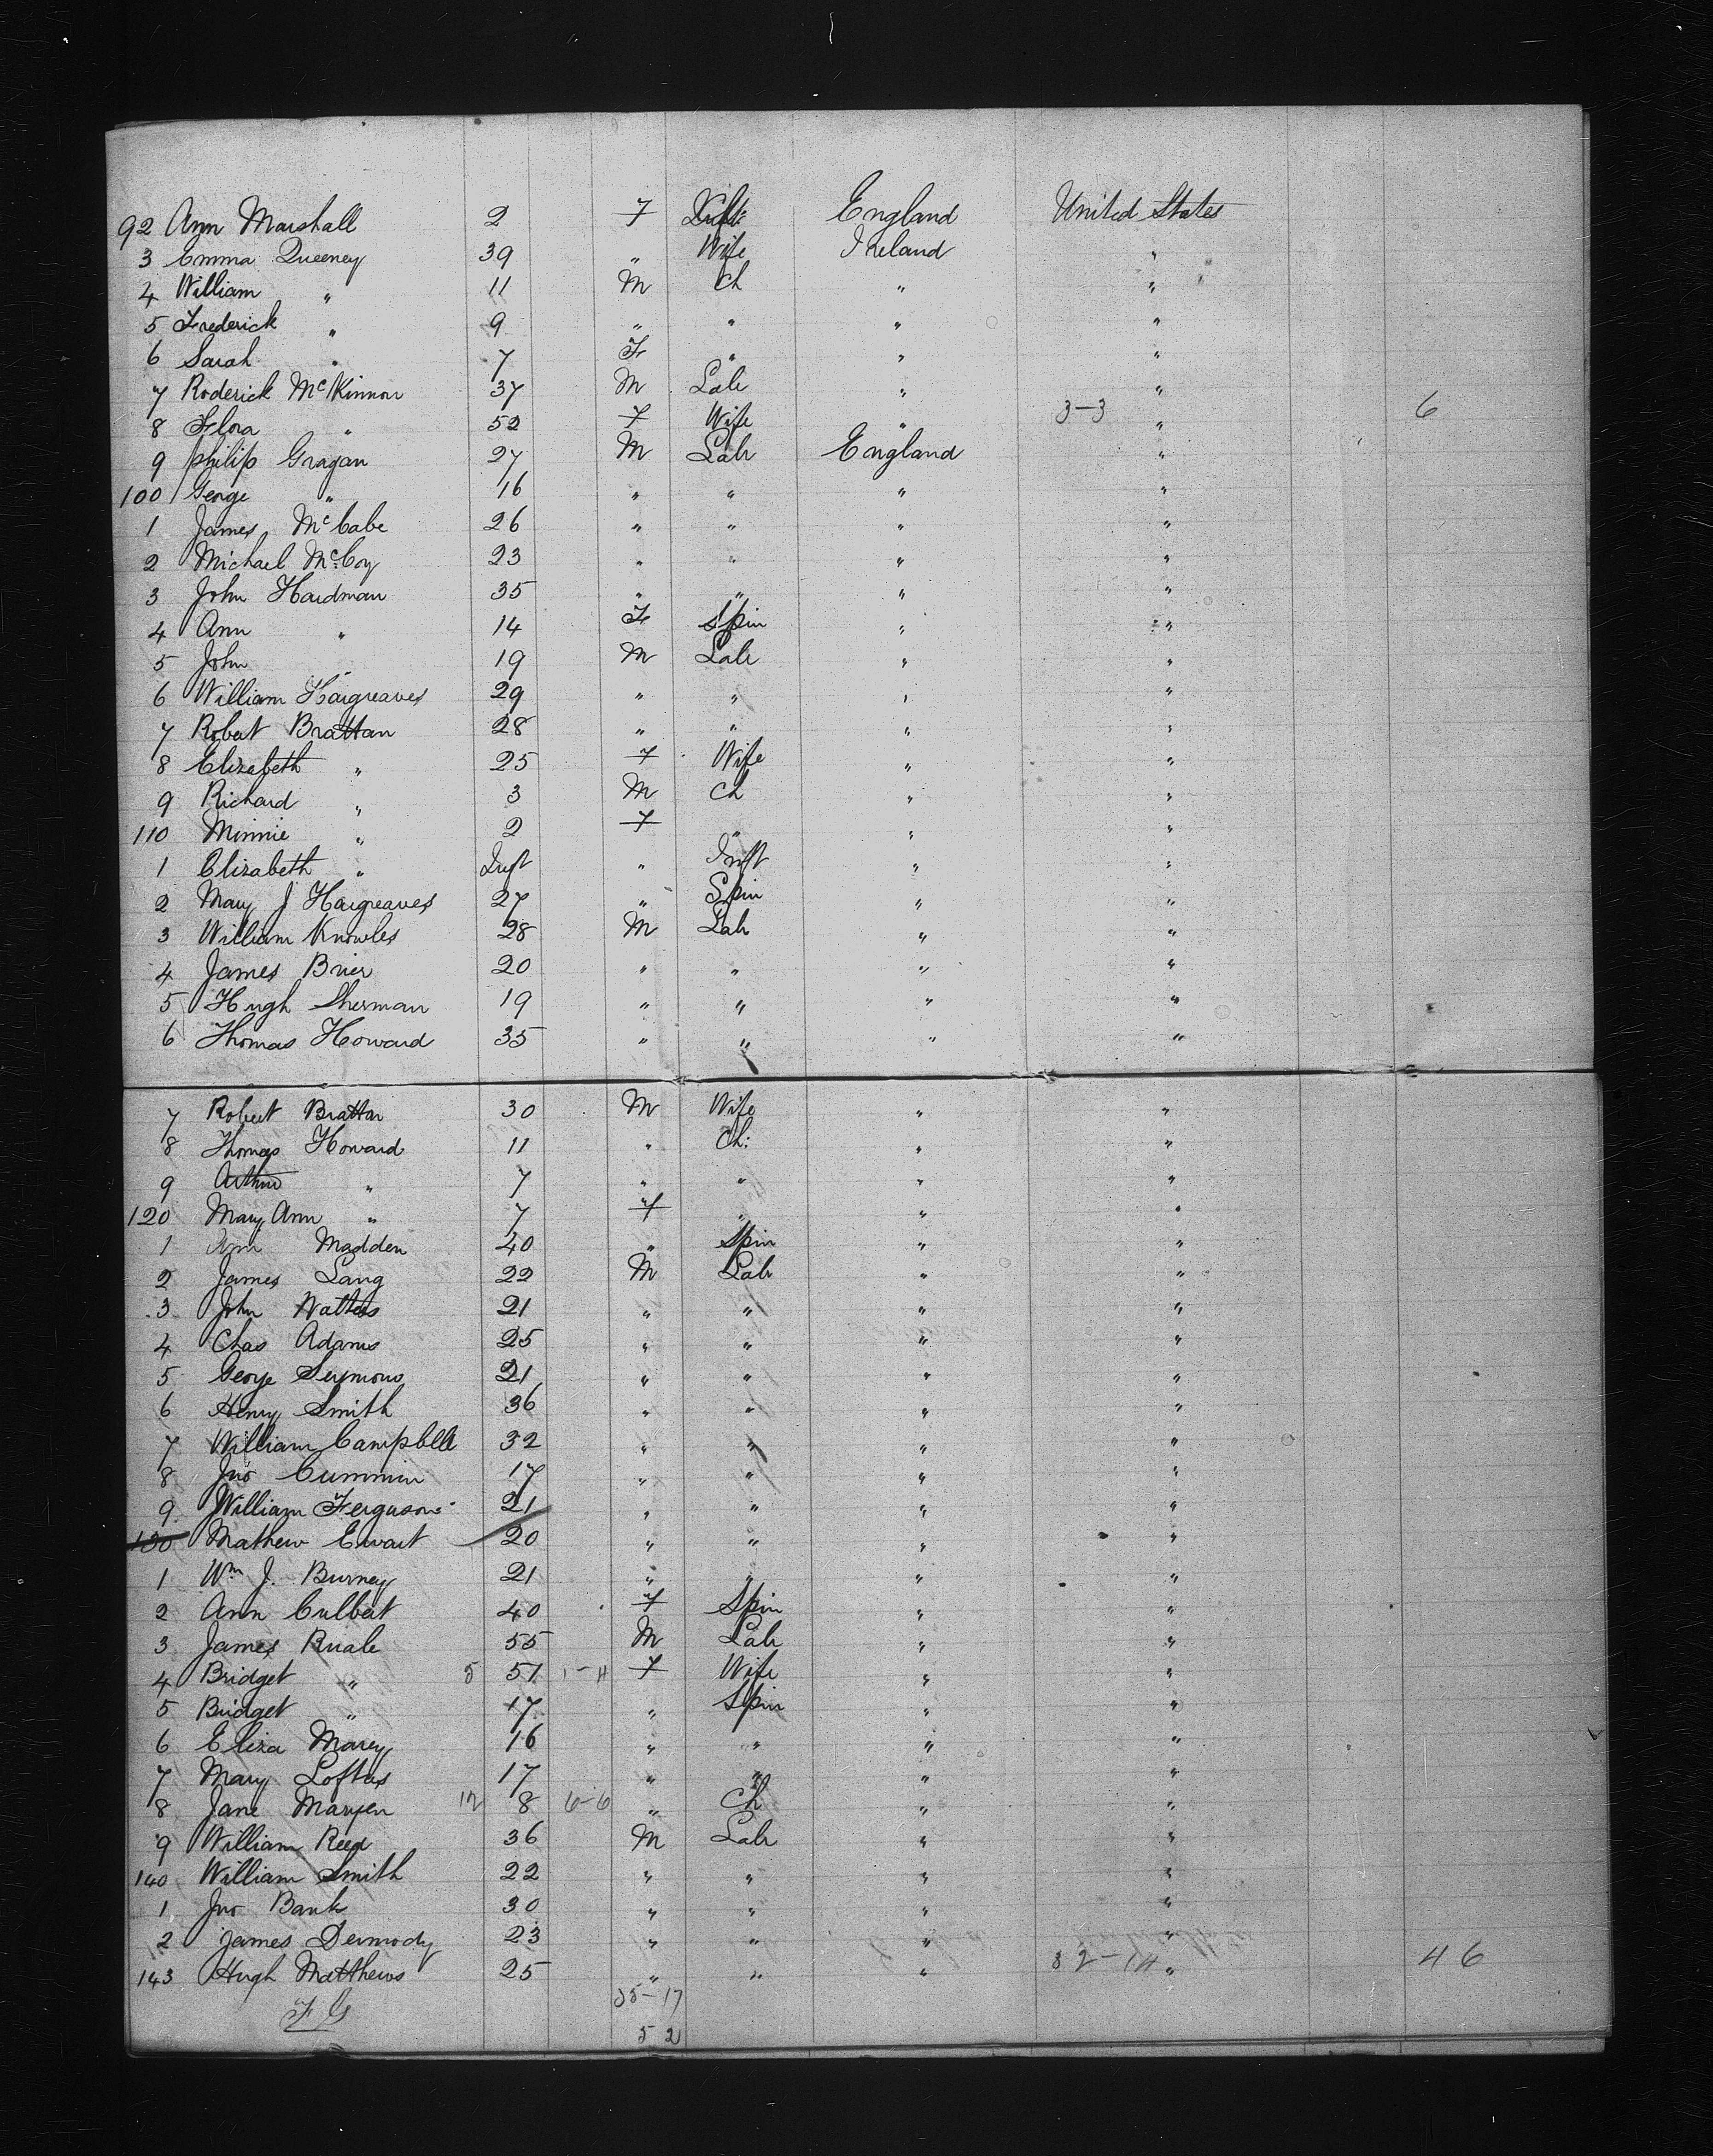 92 Ann Marshall 2 F England United States
3 Emma Queeney 39 " Wife Ireland "
4 William " 11 M Ch " "
5 Frederick " 9 " " " "
6 Sarah " 7 F " " "
7 Roderick McKinnon 37 M Labr " "
8 Flora " 52 F Wife " 3-3 " 6
9 Philip Gragan 27 M Labr England "
100 George " 16 " " " "
1 James McCabe 26 " " " "
2 Michael McCoy 23 " " " "
3 John Hardman 35 " " " "
4 Ann " 14 F Spin " "
5 John " 19 M Labr " "
6 William Hargreaves 29 " " " "
7 Robert Brattan 28 " " " "
8 Elizabeth " 25 F Wife " "
9 Richard " 3 M Ch " "
110 Minnie " 2 F " " "
1 Elizabeth " Inft " Inft " "
2 Mary J Hargreaves 27 " Spin " "
3 William Knowles 28 M Labr " "
4 James Brier 20 " " " "
5 Hugh Sherman 19 " " " "
6 Thomas Howard 35 " " " "
7 Robert Brattan 30 M Wife " "
8 Thomas Howard 11 " Ch: " "
9 Arthur " 7 " " " "
120 Mary Ann " 7 F " " "
1 Ann Madden 40 " Spin " "
2 James Lang 22 M Labr " "
3 John Watters 21 " " " "
4 Chas Adams 25 " " " "
5 George Seymour 21 " " " "
6 Henry Smith 36 " " " "
7 William Campbell 32 " " " "
8 Jno Cummin 17 " " " "
9 William Ferguson 21 " " " "
130 Mathew Ewart 20 " " " "
1 Wm J. Burney 21 " " " "
2 Ann Culbert 40 F Spin " "
3 James Ruale 55 M Labr " "
4 Bridget " 5 51 1-4 F Wife " "
5 Bridget " 17 " Spin " "
6 Eliza Marey 16 " " " "
7 Mary Loftus 17 " " " "
8 Jane 12 8 6-6 " Ch " "
9 William Reed 36 M Labr " "
140 William Smith 22 " " " "
1 Jno Bank 30 " " " "
2 James Dermody 23 " " " "
143 Hugh Matthews 25 " " " 32-14 " 46
35-17
52